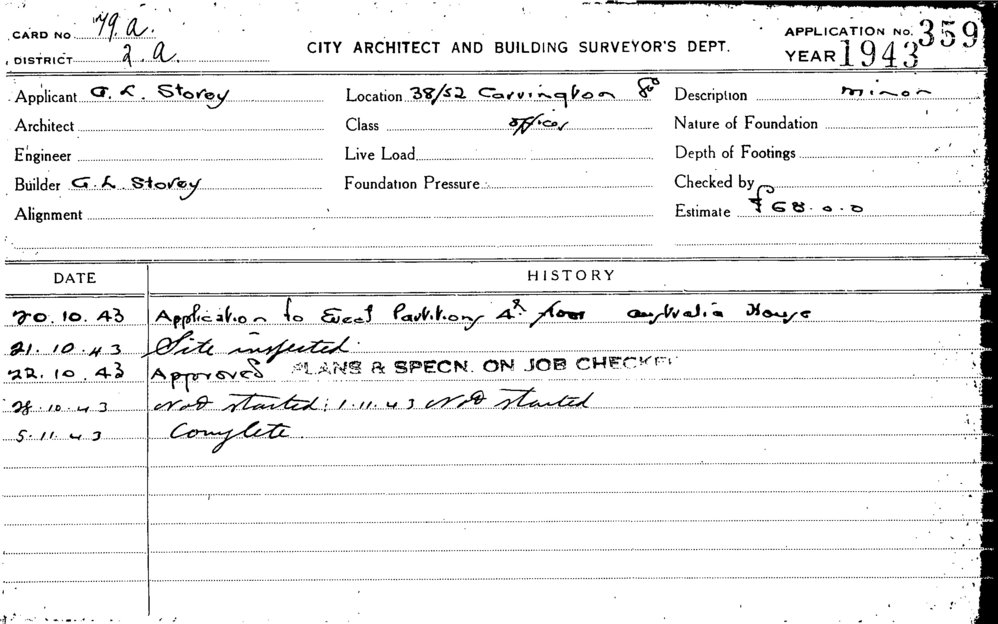 CARD NO. 79.a.
DISTRICT 2.a.
CITY ARCHITECT AND BUILDING SURVEYOR'S DEPT.
APPLICATION NO. 359
YEAR 1943
Applicant G. L. Storey
Location 38/52 Carrington
Description minor
Architect
Class offices
Nature of Foundation
Engineer
Live Load
Depth of Footings
Builder G. L. Storey
Foundation Pressure
Checked by
Alignment
Estimate £68.0.0
DATE HISTORY
20.10.43 Application to Erect Partitions 4th floor Australia House
21.10.43 Site inspected.
22.10.43 Approved PLANS & SPECN. ON JOB CHECKED
28.10.43 Not started: 1.11.43 Not started
5.11.43 Complete.